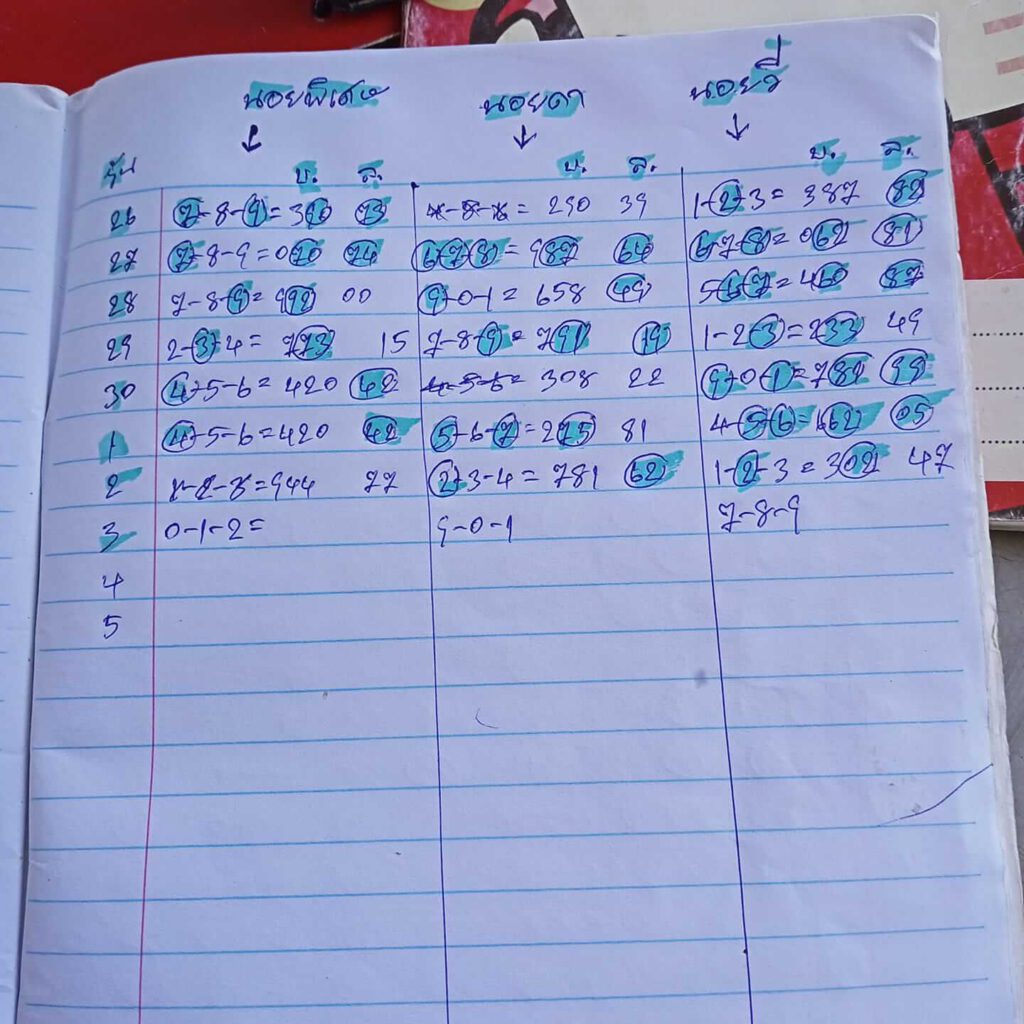 นอยพิเศษ นอยดา นอยวี่
บ. ล. บ. ล. บ. ล.
26 7-8-9=390 73 290 39 1-2-3=387 82
27 7-8-9=070 74 6-7-8=987 64 6-7-8=062 81
28 7-8-9=992 00 9-0-1=658 49 5-6-7=460 87
29 2-3-4=773 15 7-8-9=791 19 1-2-3=233 49
30 4-5-6=420 42 4-5-6=308 22 9-0-1=782 99
1 4-5-6=420 42 5-6-7=275 81 4-5-6=162 05
2 =944 77 2-3-4=781 62 1-2-3=302 47
3 0-1-2= 9-0-1 7-8-9
4
5